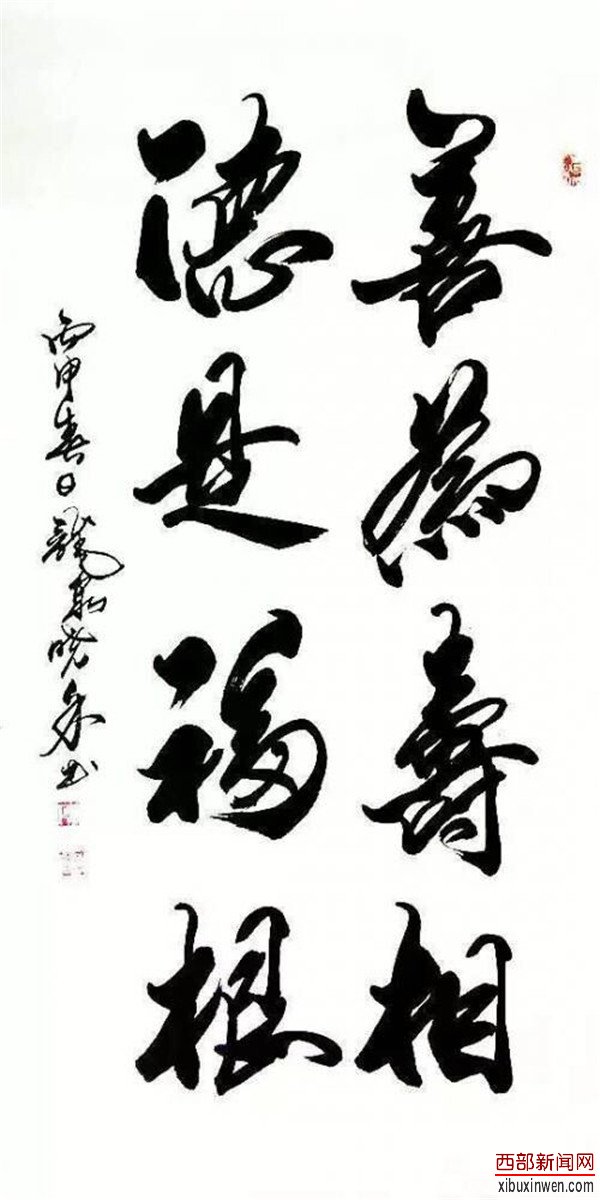 善為壽相
德是福根
丙申春日龍𠀋曉泉书
西部新闻网
xibuxinwen.com